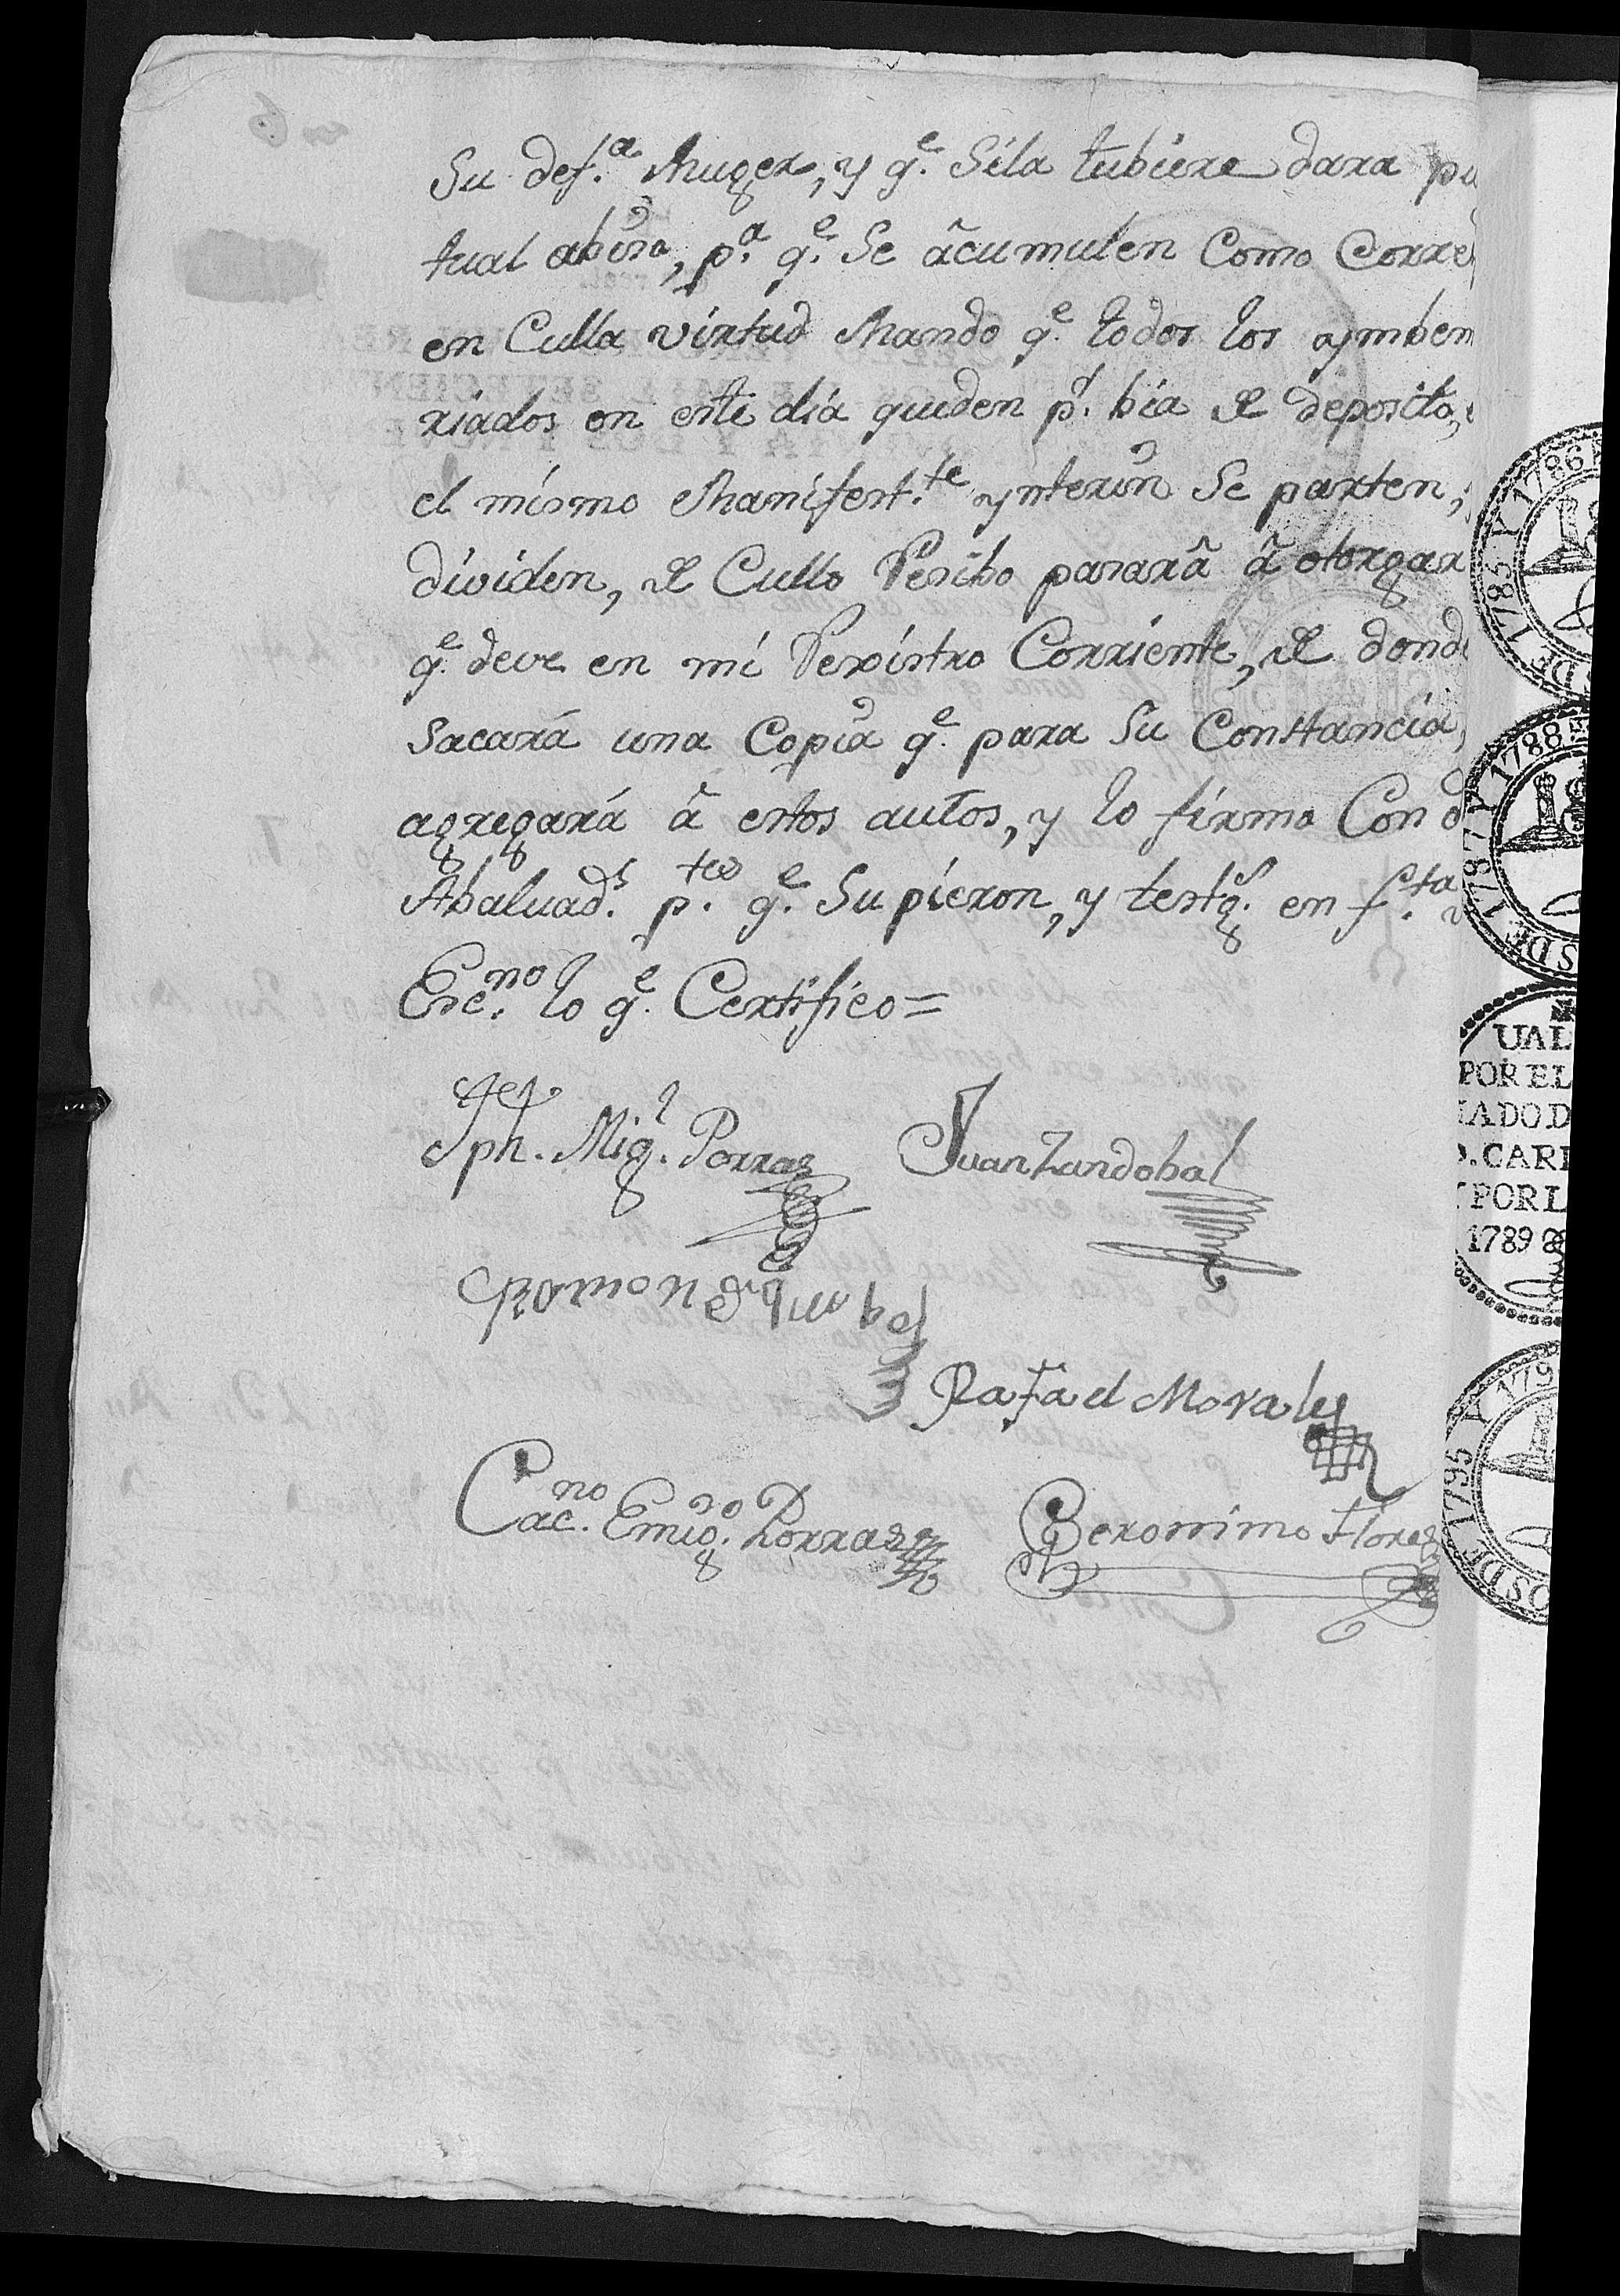 Su def.ª Muger, y q.e Sila tubiere dara pu
tual abiso, p.ª q.e Se âcumulen Como Corre
en Culla virtud Mando q.e todos los ymben
riados en este dia quden p.r bia de deposito,
el mismo Manifest.te ynterin Se parten,
dividen, de Cullo Resibo parará â otorgar
q.e deve en mi Rexistro Corriente, de dond
Sacará una Copia q.e para Su Constancia,
agregará â estos autos, y lo firmo Con d
Abaluad.s p.tes q.e Supieron, y testg.s en f.ta
Esc.no lo q.e Certifico=
Jph. Mig.l Porras
Juan Zandobal
Ramon
Rafael Morales
Cac.no Emig.o Porras
Geronimo Flores
S DE 1785 Y 1786
OS DE 1787 Y 1788
UAL
POR EL
ADO D
. CARL
POR L
1789
OS DE 1795 Y 179